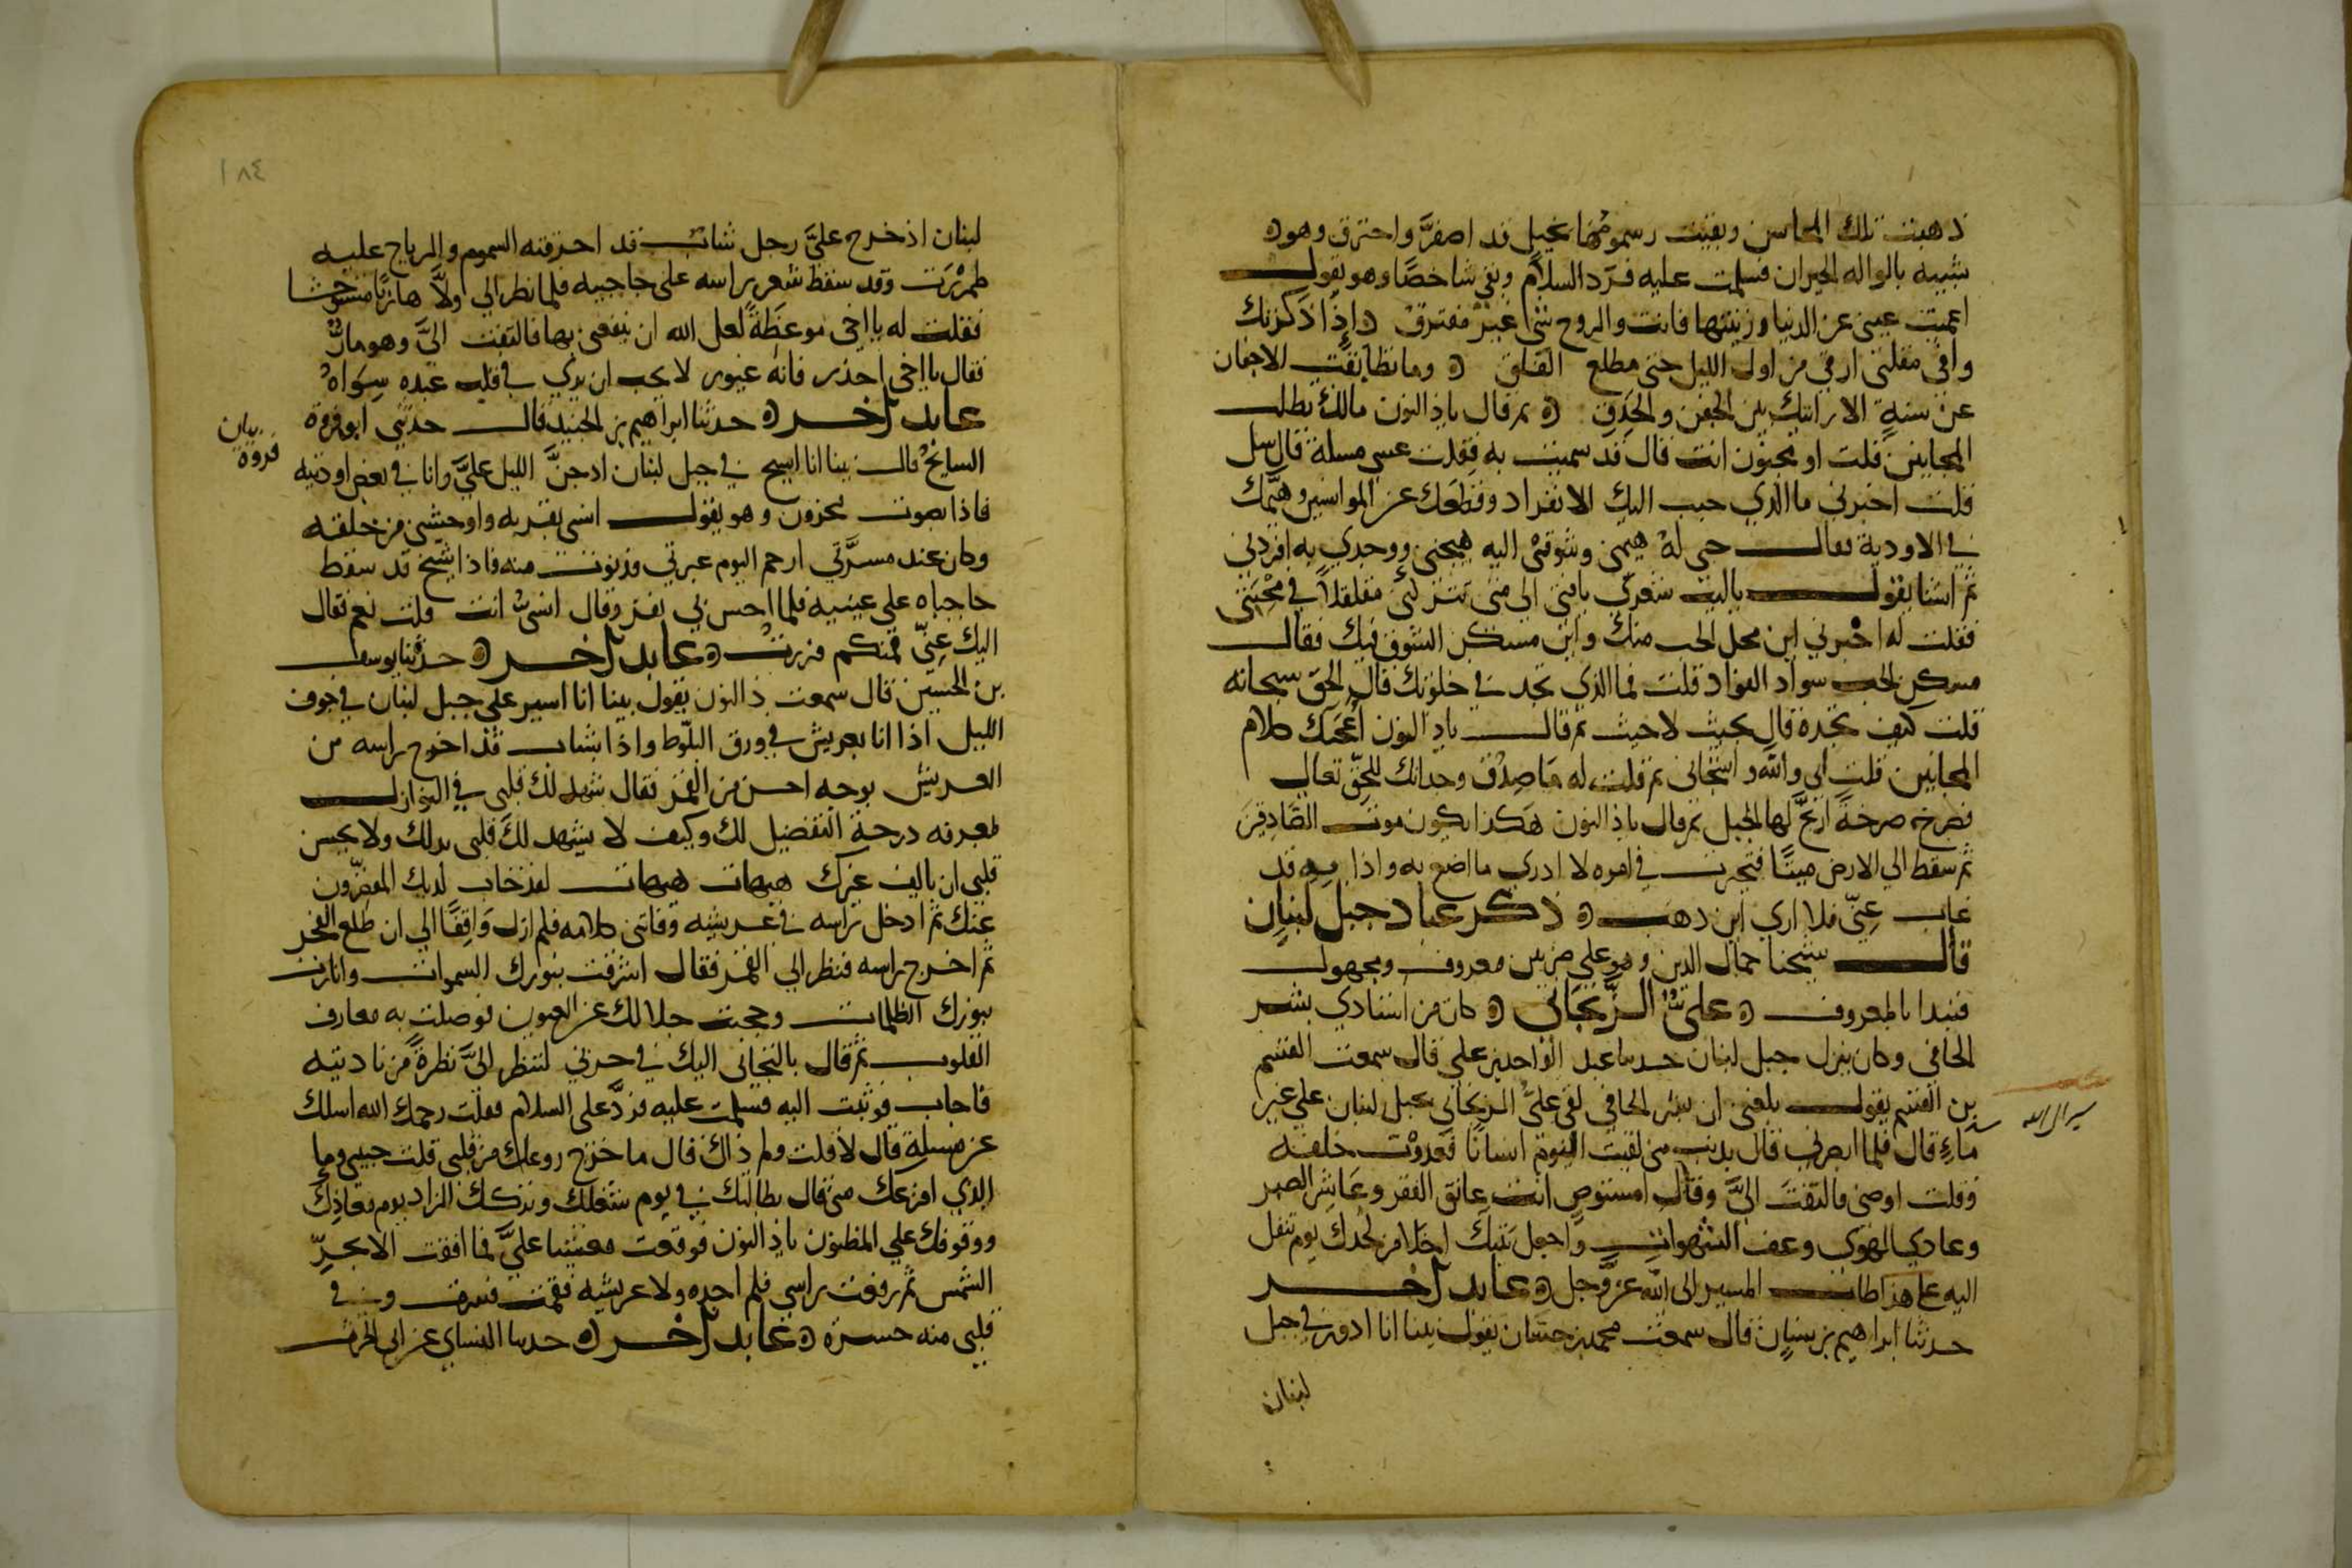 ذهبت تلك المحاسن وبقيت رسومها نحيل قد اصفرَّ واحترق وهو
شبيه بالواله الحيران فسلمت عليه فردّ السلام وبقي شاخصًا وهو يقول
اعميت عيني عن الدنيا وزينتها فانت والروح شي غير مفترق اذا ذكرتك
وافى مقلتي ارقي من اول الليل حتى مطلع الفلق وما تطابقت الاجفان
عن سنةٍ الا رايتك بين الجفن والحدق ثم قال ياذا النون مالك بطلب
المجانين قلت او مجنون انت قال قد سميت به فقلت عسى مسلة قال سل
قلت اخبرني ما الذي حبب اليك الانفراد وقطعك عن الموانسين وهيّمك
في الاودية فقال حبي له هيمني وشوقي اليه هيجني ووجدي به افردني
ثم انشا يقول ياليت شعري يا فتى الى متى تتركني مقلقلاً في محبتي
فقلت له اخبرني اين محل الحب منك واين مسكن الشوق فيك فقال
مسكن الحب سواد الفواد قلت فما الذي تجد في خلوتك قال الحق سبحانه
قلت كيف تجده قال بحيث لا حيث ثم قال ياذا النون اعجبك كلام
المجانين قلت اي والله واشجاني ثم قلت له ما صدق وجدانك للحق تعالى
فصرخ صرخةً ارتجَّ لها الجبل ثم قال ياذا النون هكذا يكون موت الصادقين
ثم سقط الي الارض ميتًا فتحيرت في امره لا ادري ما اصنع به واذا به قد
غاب عنّي فلا اري اين ذهب ذكر عباد جبل لبنان
قال شيخنا جمال الدين وهو علي ضربين معروف ومجهول
فنبدا بالمعروف عليّ الجرجاني كان من استادي بشر
الحافي وكان ينزل جبل لبنان حدثنا عبد الواحد بن علي قال سمعت القسم
بن القسم يقول بلغني ان بشر الحافي لقي عليّ الجرجاني بجبل لبنان علي عين
ماءٍ قال فلما ابصرني قال بذنب مني لقيت اليوم انسانًا فعدوت خلفه
وقلت اوصني فالتفت اليَّ وقال امستوصٍ انت عانق الفقر وعاشر الصبر
وعادي الهوى وعف الشهوات واجعل بيتك اخلا من لحدك يوم تنقل
اليه علي هذا طاب المسير الى الله عز وجل عابد آخر
حدثنا ابراهيم بن سنان قال سمعت محمد بن حسان يقول بينا انا ادور في جبل
لبنان
سير الى الله
١٨٤
لبنان اذ خرج عليَّ رجل شاب قد احرقته السموم والرياح عليه
طمر رث وقد سقط شعر راسه على حاجبيه فلما نظر الي ولَّا هاربًا مستوحشا
فقلت له يا اخي موعظةً لعل الله ان ينفعني بها فالتفت اليَّ وهو مارٌّ
فقال يا اخي احذر فانه غيور لا يحب ان يري في قلب عبده سواه
عابد آخر حدثنا ابراهيم بن الجنيد قال حدثني ابو فروة
السايح قال بينا انا اسيح في جبل لبنان اذ جنَّ الليل عليَّ وانا في بعض اوديته
فاذا بصوت محزون وهو يقول انسي بقربه واوحشني من خلقه
وكان عند مسرَّتي ارحم اليوم عبرتي فدنوت منه فاذا شيخ قد سقط
حاجباه علي عينيه فلما احس بي نفر وقال انسيٌّ انت قلت نعم فقال
اليك عنّي فمنكم فررت عابد آخر حدثنا يوسف
بن الحسين قال سمعت ذا النون يقول بينا انا اسير علي جبل لبنان في جوف
الليل اذا انا بعريش في ورق البلّوط واذا بشاب قد اخرج راسه من
العريش بوجه احسن من القمر فقال شهد لك قلبي في النوازل
لمعرفه درجة التفضيل لك وكيف لا يشهد لك قلبي بذلك ولا يحسن
قلبي ان يالف غيرك هيهات هيهات لقد خاب لديك المقصّرون
عنك ثم ادخل راسه في عريشه وفاتني كلامه فلم ازل واقفًا الي ان طلع الفجر
ثم اخرج راسه فنظر الي القمر فقال اشرقت بنورك السموات وانارت
بنورك الظلمات وحجبت جلالك عن العيون فوصلت به معارف
القلوب ثم قال بالتجائي اليك في حزني لتنظر اليَّ نظرةً من ناديته
فاجاب فوثبت اليه فسلمت عليه فردَّ علي السلام فقلت رحمك الله اسلك
عن مسلة قال لا قلت ولم ذاك قال ما خرج روعك من قلبي قلت حبيبي وما
الذي افزعك مني قال بطالتك في يوم شغلك وتركك الزاد ليوم معاذك
ووقوفك علي الظنون ياذا النون فوقعت مغشيا عليَّ فما افقت الا بحرّ
الشمس ثم رفعت راسي فلم اجده ولا عريشه فقمت فسرت وفي
قلبي منه حسرة عابد آخر حدثنا النساي عن ابي الحرث
بيان
فروة